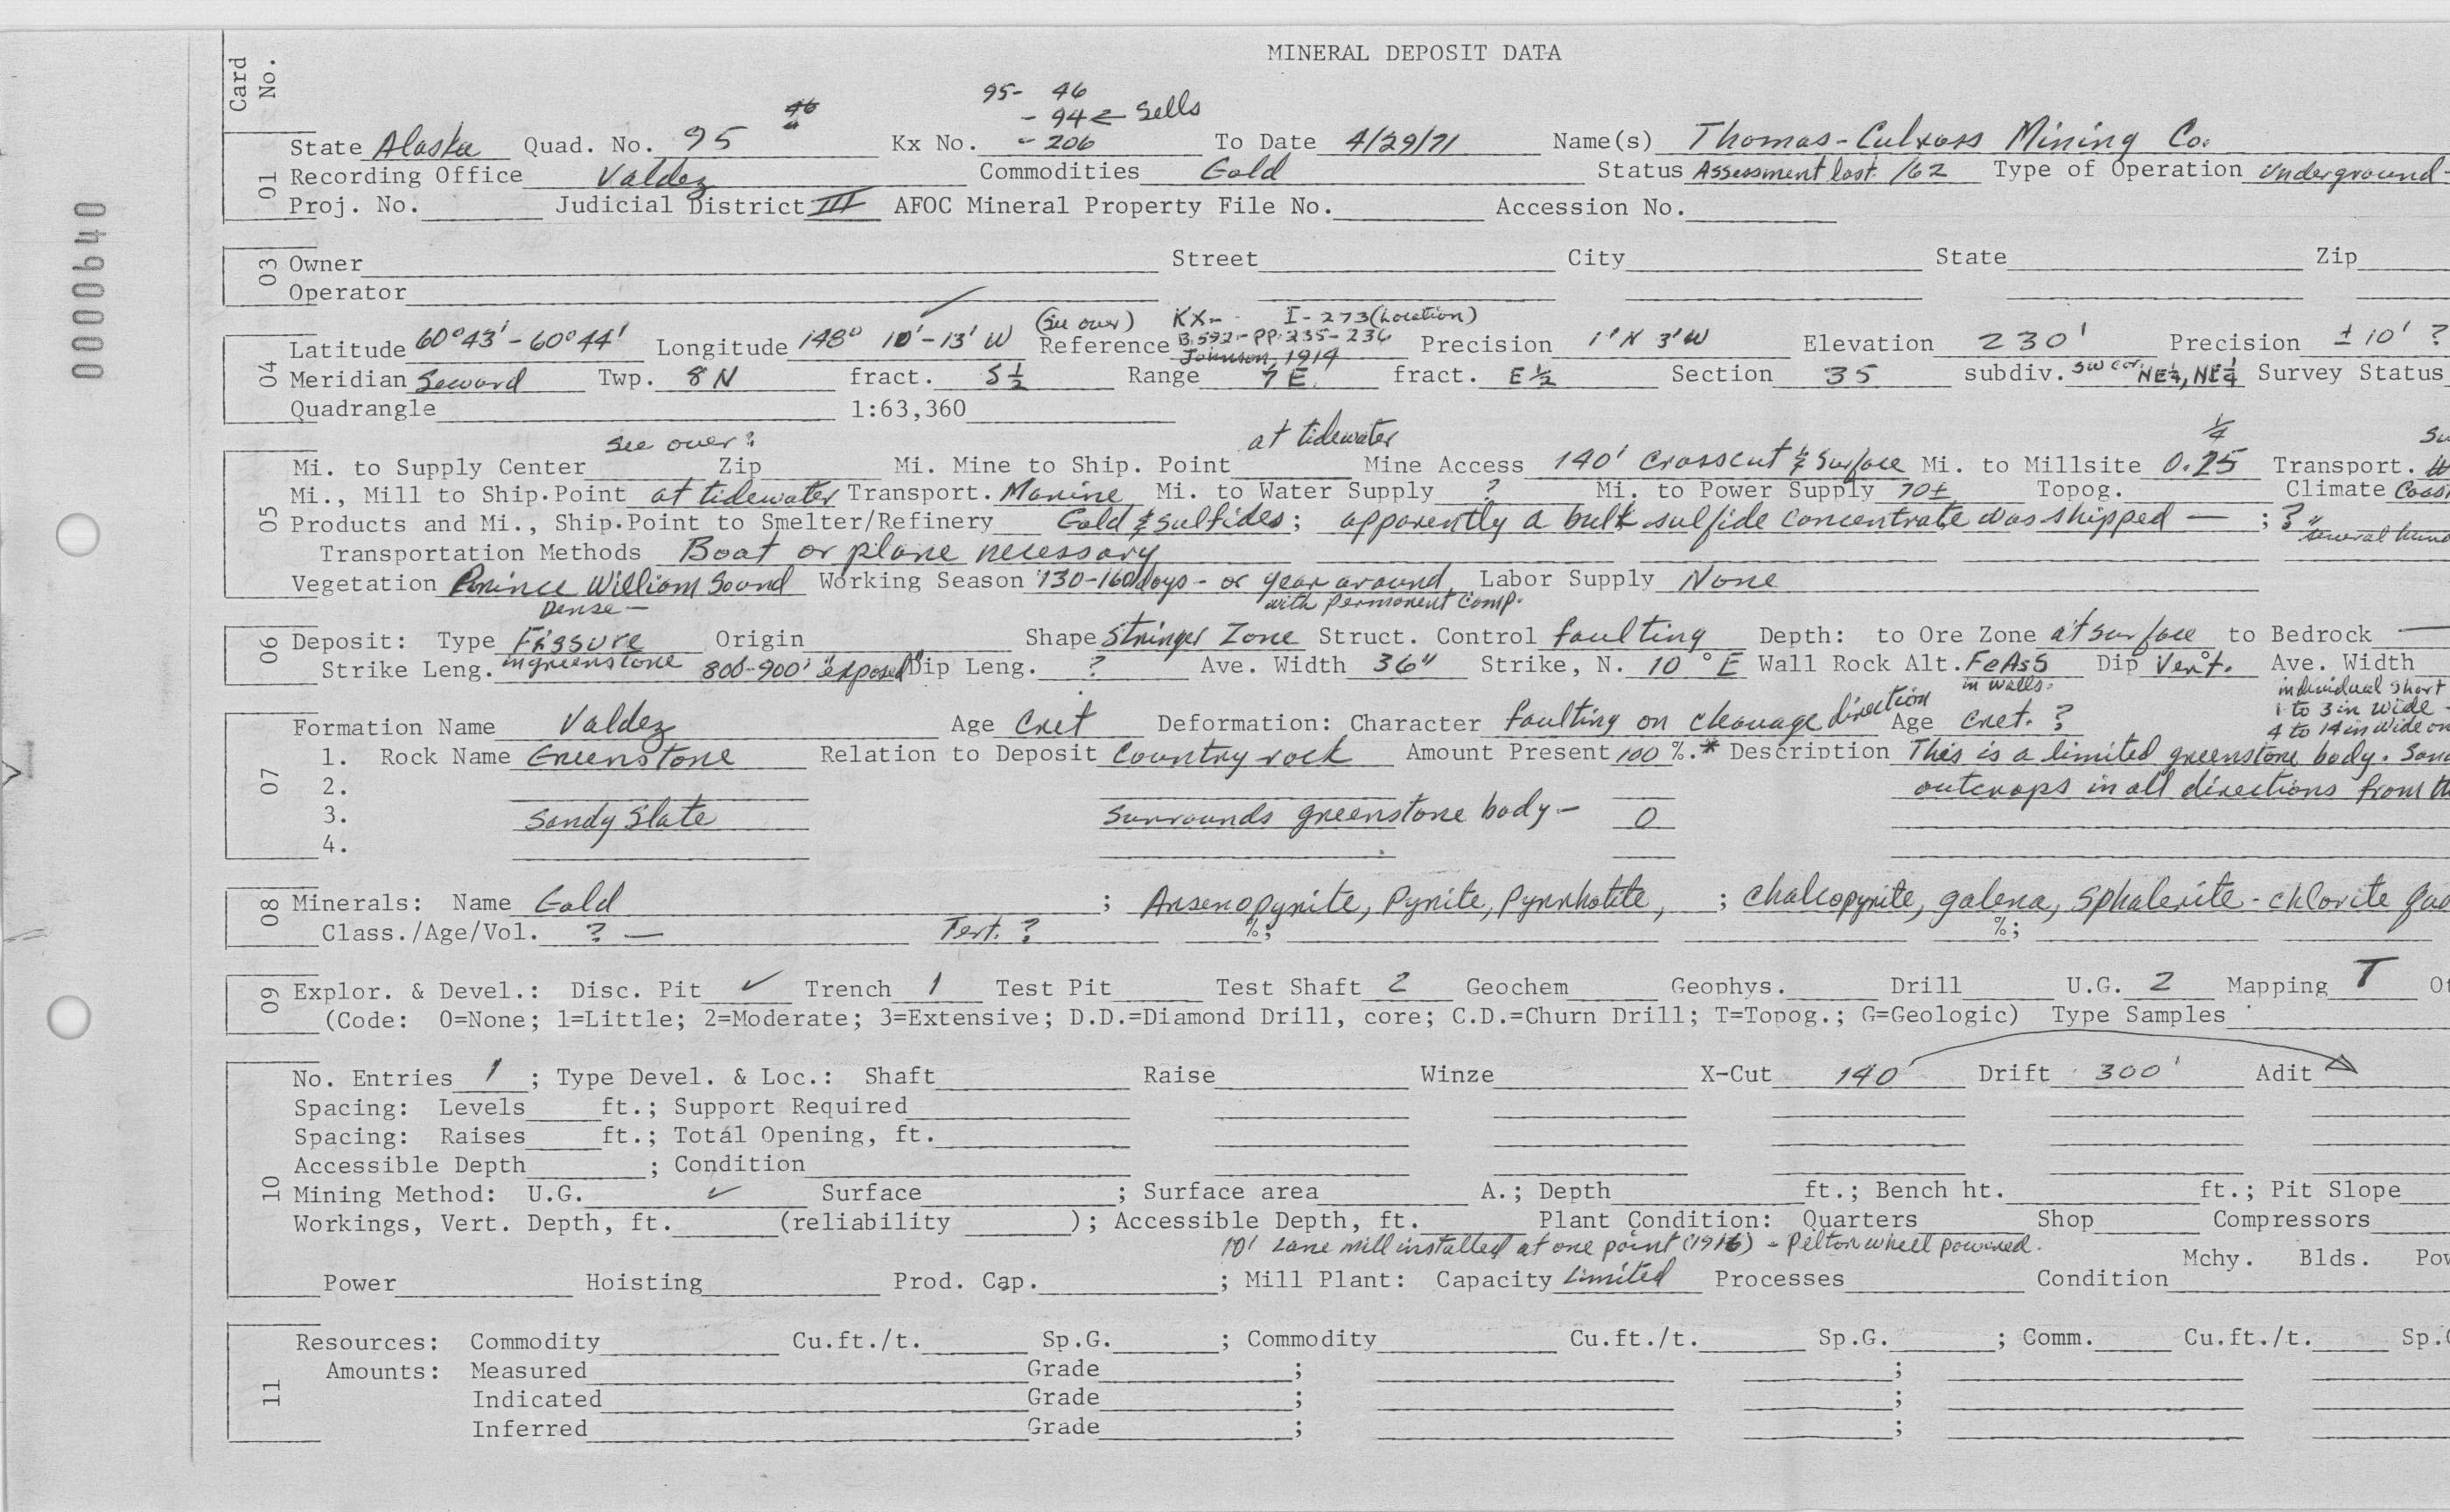 MINERAL DEPOSIT DATA
Card No.
95- 46
- 94 ← Sells
01 State Alaska Quad. No. 95 Kx No. - 206 To Date 4/29/71 Name(s) Thomas-Culross Mining Co.
Recording Office Valdez Commodities Gold Status Assessment last /62 Type of Operation Underground-
Proj. No. Judicial District III AFOC Mineral Property File No. Accession No.
0000640
03 Owner Street City State Zip
Operator
(See over) KX- I-273 (Location)
04 Latitude 60°43'-60°44' Longitude 148° 10'-13' W Reference B.592-PP.235-236 Johnson, 1914 Precision 1'N 3'W Elevation 230' Precision ±10' ?
Meridian Seward Twp. 8N fract. S½ Range 7E. fract. E½ Section 35 subdiv. SW cor. NE¼, NE¼ Survey Status
Quadrangle 1:63,360
See over? at tidewater ¼
05 Mi. to Supply Center Zip Mi. Mine to Ship. Point Mine Access 140' Crosscut & Surface Mi. to Millsite 0.25 Transport.
Mi., Mill to Ship.Point at tidewater Transport. Marine Mi. to Water Supply ? Mi. to Power Supply 70± Topog. Climate
Products and Mi., Ship.Point to Smelter/Refinery Gold & Sulfides; apparently a bulk sulfide concentrate was shipped — ; ?
Transportation Methods Boat or plane necessary several
Vegetation Prince William Sound Working Season 130-160 days - or year around Labor Supply None
Dense — with permanent comp.
06 Deposit: Type Fissure Origin Shape Stringer Zone Struct. Control faulting Depth: to Ore Zone at surface to Bedrock —
in greenstone
Strike Leng. 800-900' "exposed" Dip Leng. ? Ave. Width 36" Strike, N. 10 °E Wall Rock Alt. FeAsS Dip Vert. Ave. Width
in walls. individual short
1 to 3 in wide -
4 to 14 in wide on
07 Formation Name Valdez Age Cret Deformation: Character faulting on cleavage direction Age Cret. ?
1. Rock Name Greenstone Relation to Deposit Country rock Amount Present 100 %.* Description This is a limited greenstone body.
2. outcrops in all directions from
3. Sandy Slate Surrounds greenstone body - 0
4.
08 Minerals: Name Gold ; Arsenopyrite, Pyrite, Pyrrhotite, ; chalcopyrite, galena, Sphalerite - chlorite
Class./Age/Vol. ? — Tert. ? %; %;
09 Explor. & Devel.: Disc. Pit ✓ Trench 1 Test Pit Test Shaft 2 Geochem Geophys. Drill U.G. 2 Mapping T
(Code: 0=None; 1=Little; 2=Moderate; 3=Extensive; D.D.=Diamond Drill, core; C.D.=Churn Drill; T=Topog.; G=Geologic) Type Samples
10 No. Entries 1 ; Type Devel. & Loc.: Shaft Raise Winze X-Cut 140' Drift 300' Adit
Spacing: Levels ft.; Support Required
Spacing: Raises ft.; Total Opening, ft.
Accessible Depth ; Condition
Mining Method: U.G. ✓ Surface ; Surface area A.; Depth ft.; Bench ht. ft.; Pit Slope
Workings, Vert. Depth, ft. (reliability ); Accessible Depth, ft. Plant Condition: Quarters Shop Compressors
10' Lane mill installed at one point (1916) - Pelton wheel powered.
Mchy. Blds.
Power Hoisting Prod. Cap. ; Mill Plant: Capacity Limited Processes Condition
11 Resources: Commodity Cu.ft./t. Sp.G. ; Commodity Cu.ft./t. Sp.G. ; Comm. Cu.ft./t.
Amounts: Measured Grade ; ;
Indicated Grade ; ;
Inferred Grade ; ;